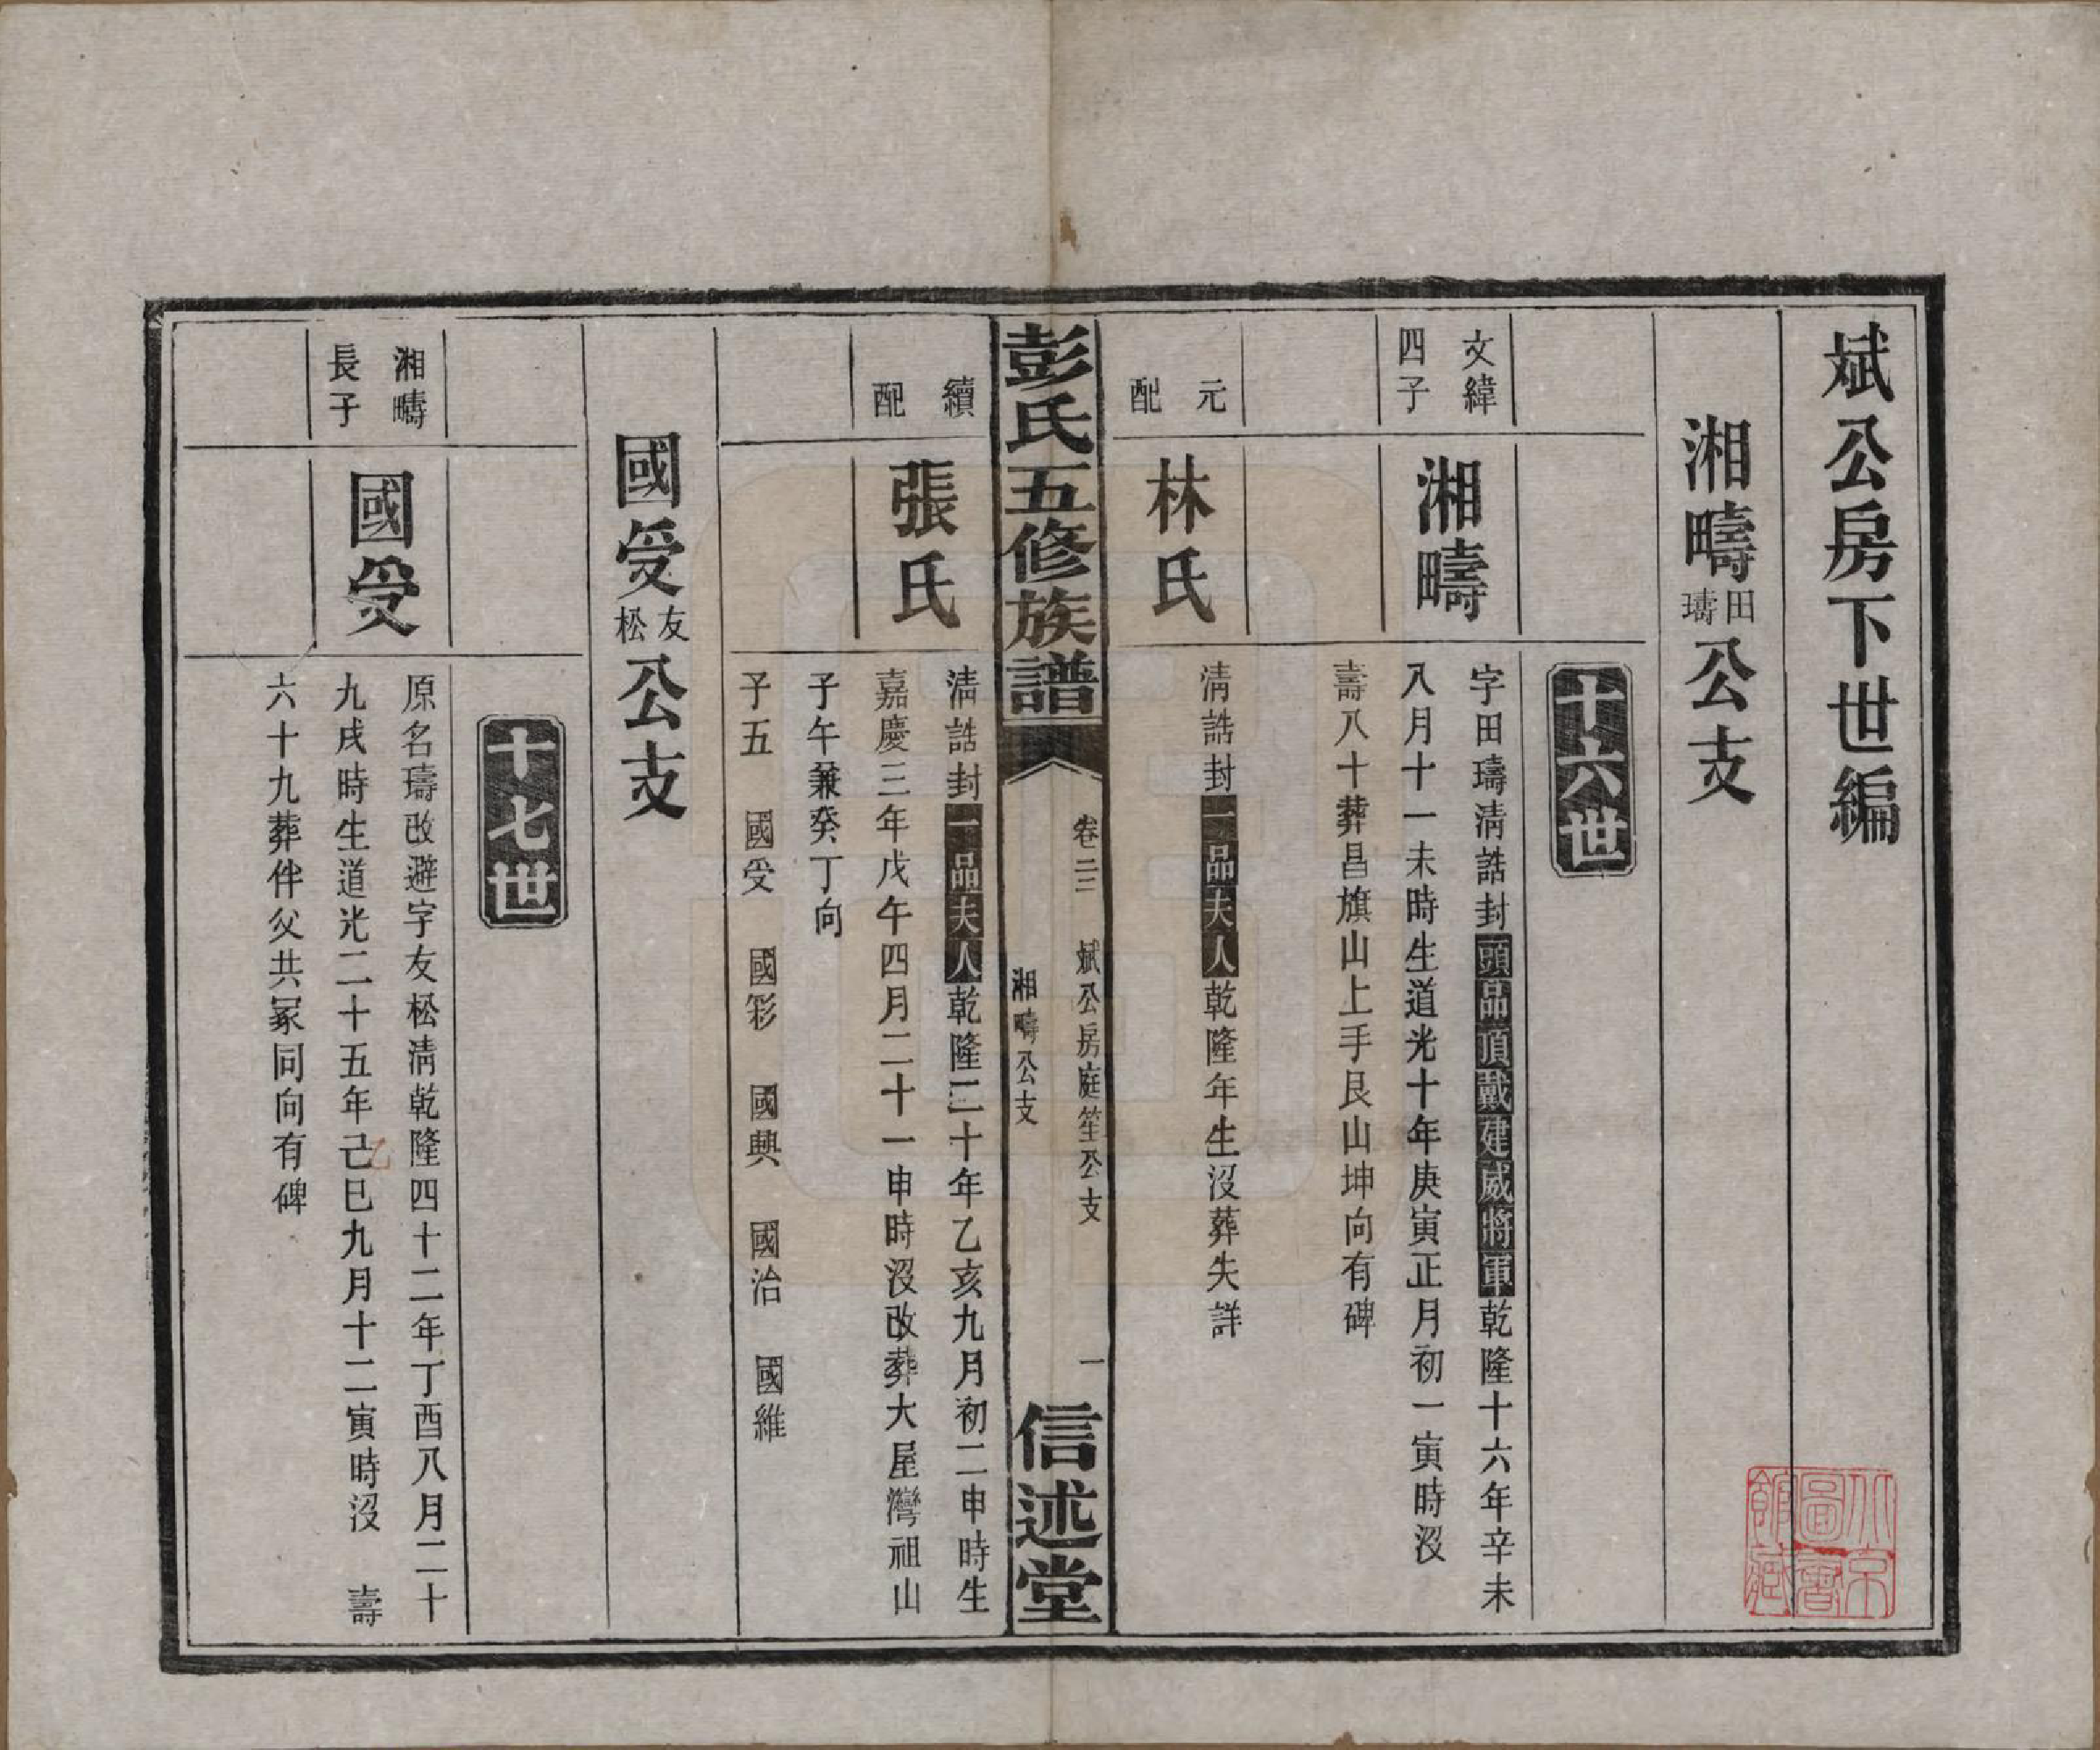 斌公房下世編
湘疇田璹公支
十六世
文緯四子
湘疇
字田璹清誥封頭品頂戴建威將軍乾隆十六年辛未
八月十一未時生道光十年庚寅正月初一寅時沒
壽八十葬昌旗山上手艮山坤向有碑
元配
林氏
清誥封一品夫人乾隆年生沒葬失詳
彭氏五修族譜
卷二三 斌公房庭笙公支
湘疇公支
一
信述堂
續配
張氏
清誥封一品夫人乾隆二十年乙亥九月初二申時生
嘉慶三年戊午四月二十一申時沒改葬大屋灣祖山
子午兼癸丁向
子五 國受 國彩 國興 國治 國維
國受友松公支
十七世
湘疇長子
國受
原名璹改避字友松清乾隆四十二年丁酉八月二十
九戌時生道光二十五年己巳九月十二寅時沒 壽
乙
六十九葬伴父共冢同向有碑
北京圖書館藏